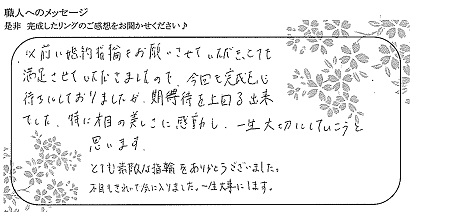 職人へのメッセージ
是非 完成したリングのご感想をお聞かせください♪
以前に婚約指輪をお願いさせていただき、とても
満足させていただきましたので、今回も完成を心
待ちにしておりましたが、期待を上回る出来
でした。特に木目の美しさに感動し、一生大切にしていこうと
思います。
とても素敵な指輪をありがとうございました。
木目もきれいで気に入りました。一生大事にします。